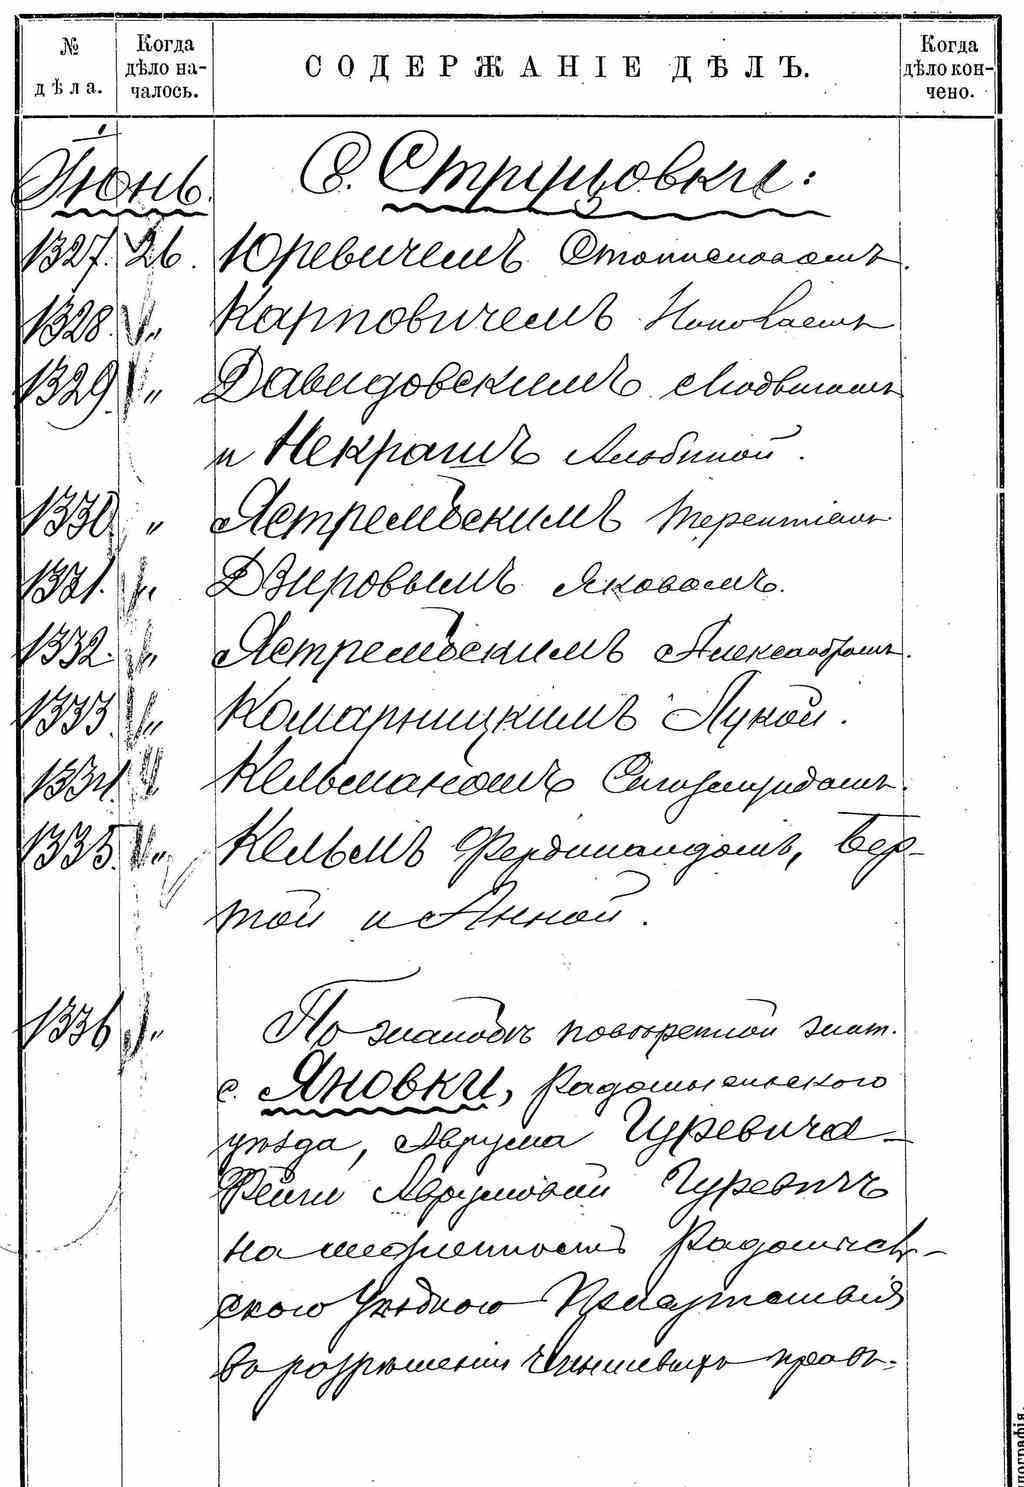 № дѣла.
Когда дѣло началось.
СОДЕРЖАНІЕ ДѢЛЪ.
Когда дѣло кончено.
Іюнь.
С. Струцовки:
1327. 26. Юревичемъ
1328. „ Карповичемъ
1329. „ Давидовскимъ Людвигомъ
и Некрашъ Альбиной.
1330 „ Ястрембскимъ Терентіемъ
1331. „ Дзировымъ Яковомъ.
1332. „ Ястрембскимъ Александромъ.
1333. „ Комарницкимъ Лукой.
1334. „ Кельманомъ Сигизмундомъ.
1335. „ Кельмъ Фердинандомъ, Бер-
той и Анной.
1336 „ По жалобѣ повѣренной жит.
с. Яновки, Радомысльского
уѣзда, Аврума Гуревича –
Фейги Аврумовой Гуревичъ
на медленность Радомысль-
ского Уѣздного Присутствія
въ разрѣшеніи чиншевыхъ правъ.